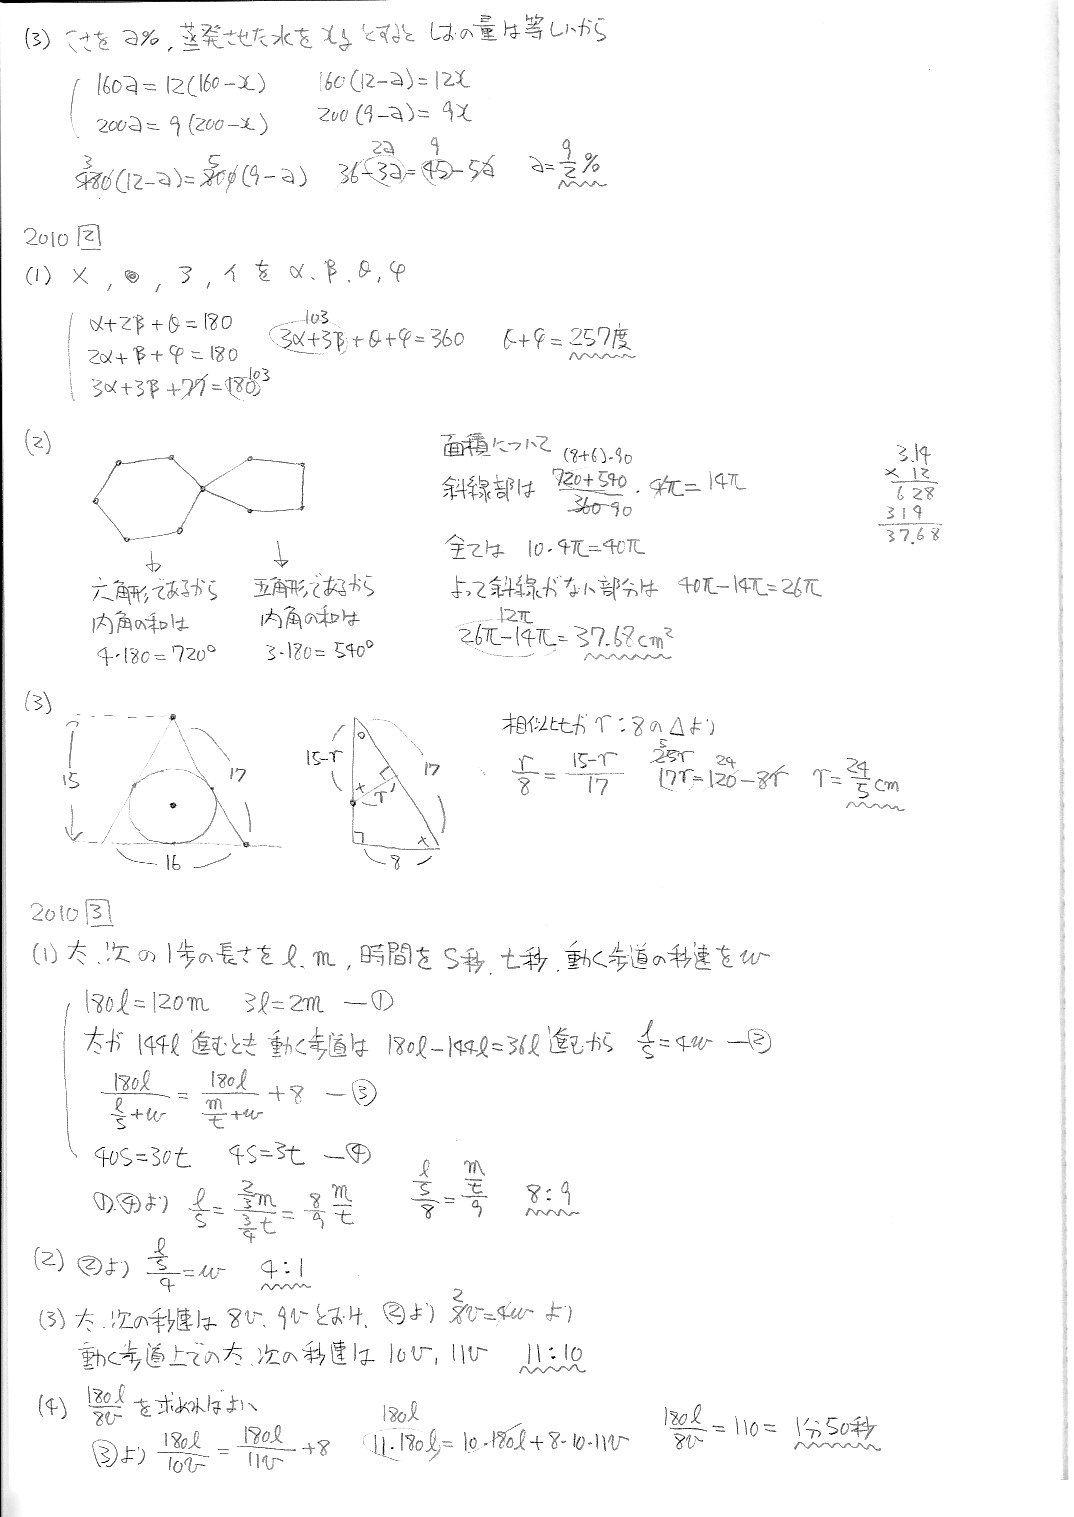 (3) こさをa%,蒸発させた水をxgとすると しおの量は等しいから
160a=12(160-x) 160(12-a)=12x
200a=9(200-x) 200(9-a)=9x
480(12-a)=800(9-a) 36-3a=45-5a a=9/2%
3 5 2a 9
2010 2
(1) ×, ●, ア, イを α、β、θ,φ
α+2β+θ=180
2α+β+φ=180
3α+3β+77=180 103
3α+3β+θ+φ=360 θ+φ=257度
103
(2)
六角形であるから
内角の和は
4・180=720°
五角形であるから
内角の和は
3・180=540°
面積について
(8+6)・90
斜線部は (720+540)/(360・90)・4π=14π
全ては 10・4π=40π
よって斜線がない部分は 40π-14π=26π
12π
26π-14π=37.68cm²
3.14
×12
628
314
37.68
(3)
15 17 16
15-r r 17 8
相似比が r:8の△より
r/8=(15-r)/17 17r=120-8r r=24/5cm
25r 5 24
2010 3
(1) 太、次の1歩の長さをl、m,時間をs秒、t秒、動く歩道の秒速をw
180l=120m 3l=2m ―①
太が144l進むとき動く歩道は180l-144l=36l進むから l/s=4w ―②
180l/(l/s+w)=180l/(m/t+w)+8 ―③
40s=30t 4s=3t ―④
①、④より l/s=(2/3 m)/(3/4 t)=8/9 m/t (l/s)/8=(m/t)/9 8:9
(2) ②より (l/s)/4=w 4:1
(3) 太、次の秒速は8v、9vとおけ、②より 8v=4w より
2
動く歩道上での太、次の秒速は10v,11v 11:10
(4) 180l/8v を求めればよい
③より 180l/10v=180l/11v+8 11・180l=10・180l+8・10・11v 180l/8v=110=1分50秒
180l